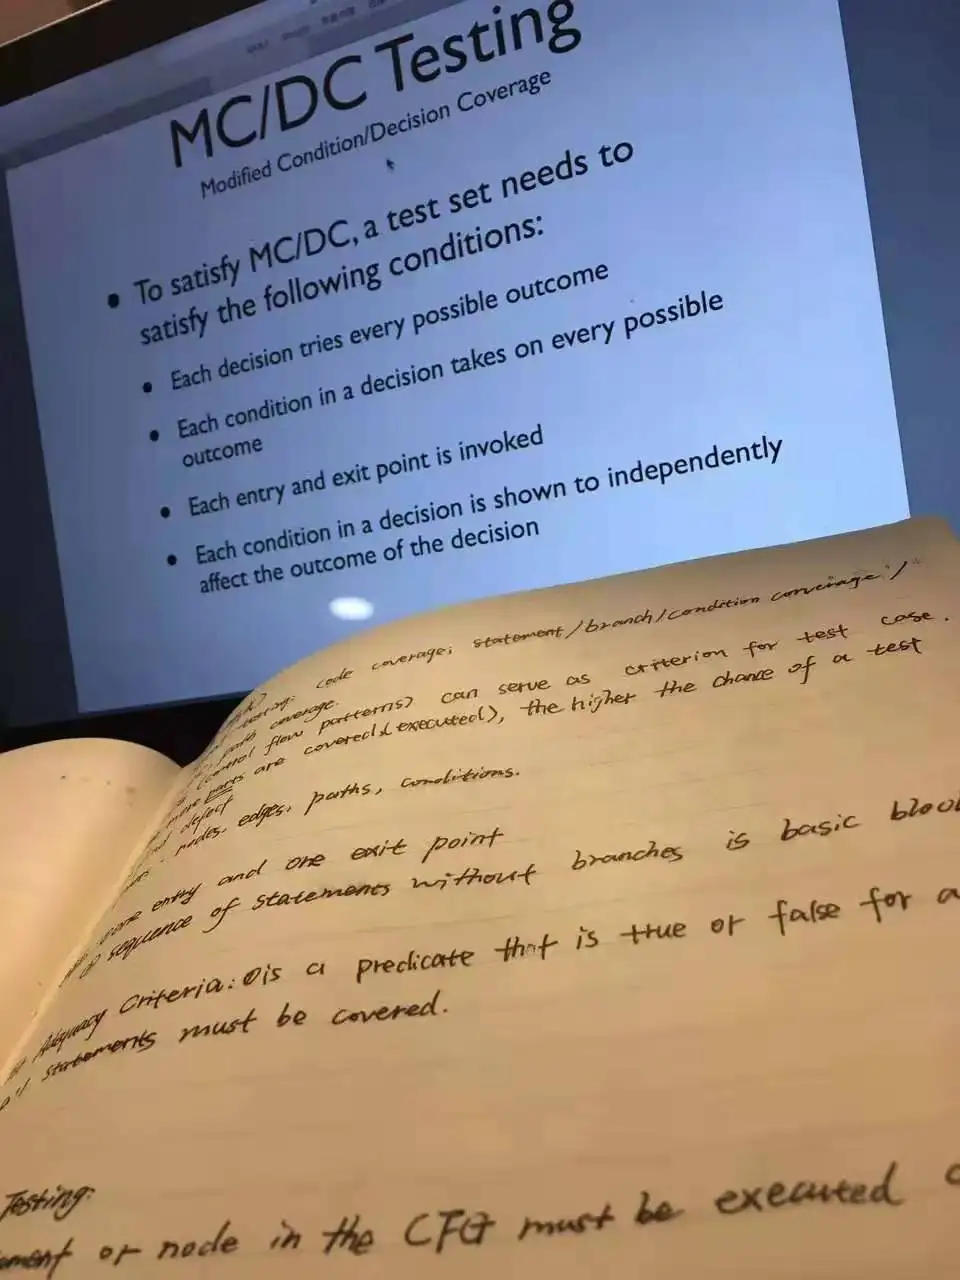 MC/DC Testing
Modified Condition/Decision Coverage
• To satisfy MC/DC, a test set needs to
satisfy the following conditions:
• Each decision tries every possible outcome
• Each condition in a decision takes on every possible
outcome
• Each entry and exit point is invoked
• Each condition in a decision is shown to independently
affect the outcome of the decision
testing: code coverage: statement/branch/condition converage:/
path coverage.
(control flow patterns) can serve as criterion for test case.
more parts are covered(executed), the higher the chance of a test
defect
nodes, edges, paths, conditions.
one entry and one exit point
sequence of statements without branches is basic bloc
Adequacy Criteria: ①is a predicate that is true or false for a
statements must be covered.
Testing:
ement or node in the CFG must be executed